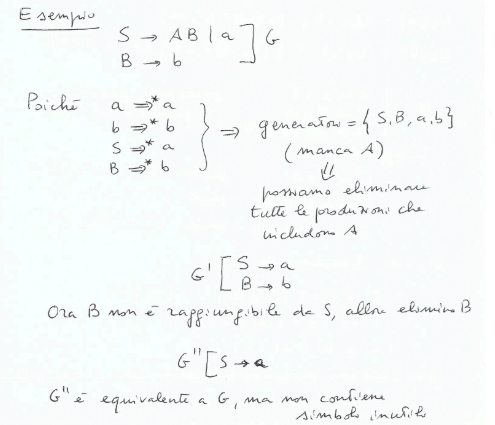 Esempio
S → AB | a ] G
B → b
Poiché a ⇒* a
b ⇒* b
S ⇒* a
B ⇒* b
} ⇒ generatori = { S, B, a, b }
(manca A)
⇓
possiamo eliminare
tutte le produzioni che
includono A
G' [ S → a
B → b
Ora B non è raggiungibile da S, allora elimino B
G'' [ S → a
G'' è equivalente a G, ma non contiene
simboli inutili